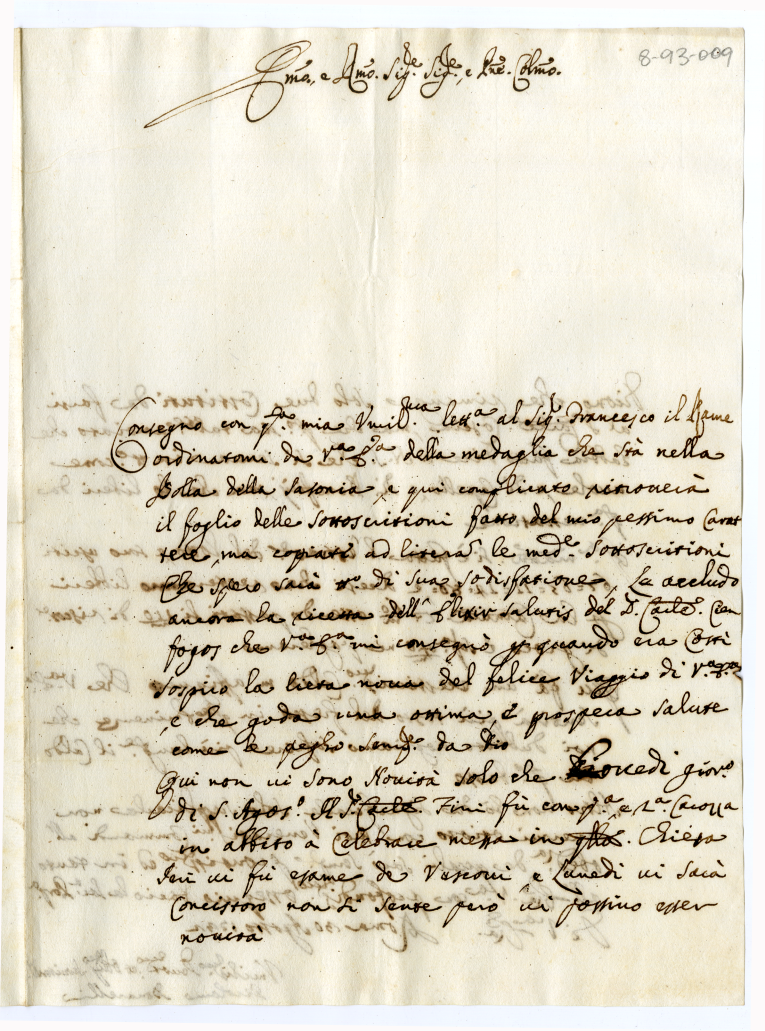 8-93-009
Emo., e Rmo. Sig.re Sig.re, e Pne. Colmo.
Consegno con q.ta mia Vmil.ma lett.a al Sig.r Francesco il Rame
ordinatomi da V.a E.a della medaglia che stà nella
Bolla della Sasonia, e qui complicato ritrouerà
il foglio delle Sottoscritioni fatto del mio pessimo Carat
tere, ma copiate ad litera le med.e Sottoscritioni
Che spero sarà di sua sodisfatione, Le accludo
ancora la ricetta dell' Elixir salutis del S.r Card.e Cien
fogos che V.a E.a mi consegnò quando era Costi
Sospiro la lieta noua del felice Viaggio di V.a E.a
, e che goda una ottima, e prospera salute
come le pregho Semp.e da Dio
Qui non ui sono Nouità solo che Giouedi gior.o
di S. Agos.o Il S.r Card.e Fini fù con p.a e 2.a Carozza
in abbito à Celebrare messa in Chiesa
Ieri ui fù esame de Vescoui e Lunedi ui sarà
Concistoro non si sente però ui possino esser
nouità